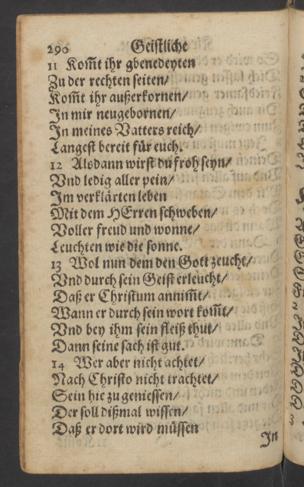 290 Geistliche
11 Kom̃t ihr gbenedeyten
Zu der rechten seiten/
Kom̃t ihr außerkornen/
In mir neugebornen/
In meines Vatters reich/
Langest bereit für euch.
12 Alsdann wirst du froh seyn/
Vnd ledig aller pein/
Im verklärten leben
Mit dem HErren schweben/
Voller freud und wonne/
Leuchten wie die sonne.
13 Wol nun dem den Gott zeucht/
Vnd durch sein Geist erleucht/
Daß er Christum annim̃t/
Wann er durch sein wort kom̃t/
Vnd bey ihm sein fleiß thut/
Dann seine sach ist gut.
14 Wer aber nicht achtet/
Nach Christo nicht trachtet/
Sein hie zu geniessen/
Der soll dißmal wissen/
Daß er dort wird müssen
In